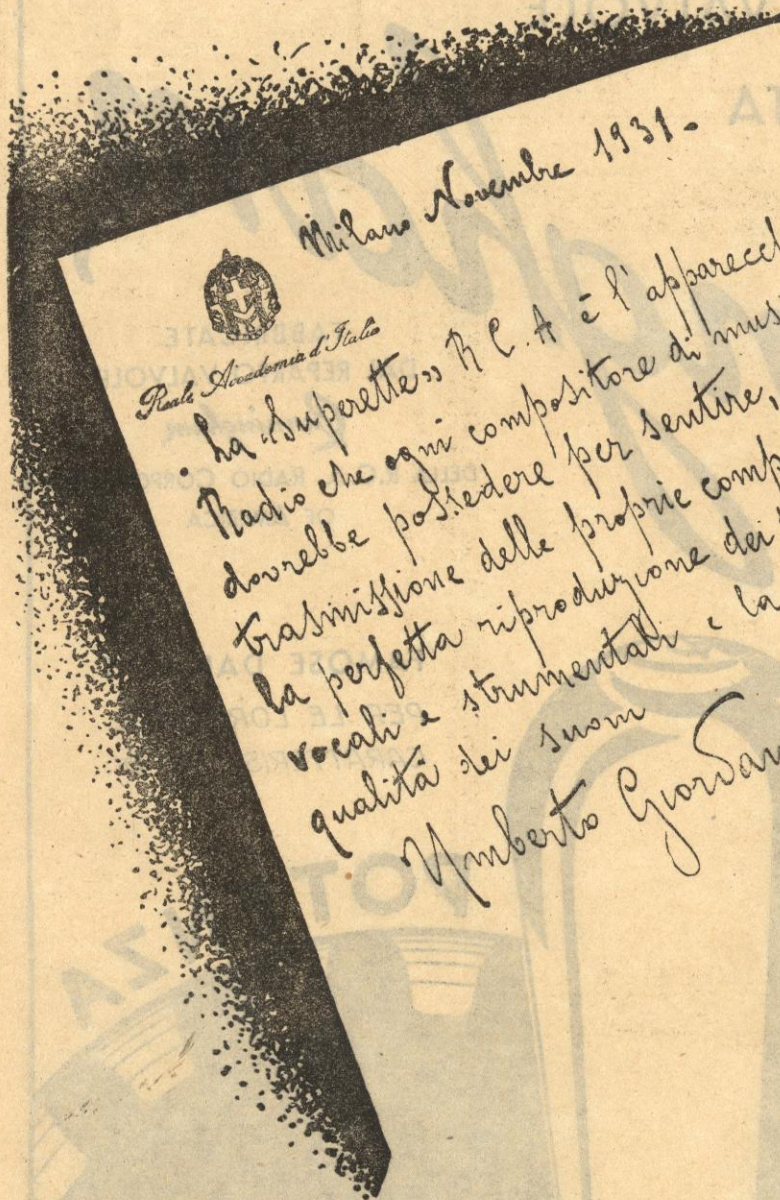 Milano Novembre 1931-
Reale Accademia d'Italia
La "Superette" R C. A è l'apparecch
Radio che ogni compositore di mus
dovrebbe possedere per sentire,
trasmissione delle proprie comp
la perfetta riproduzione dei
vocali e strumentali e la
qualità dei suoni
Umberto Giordan